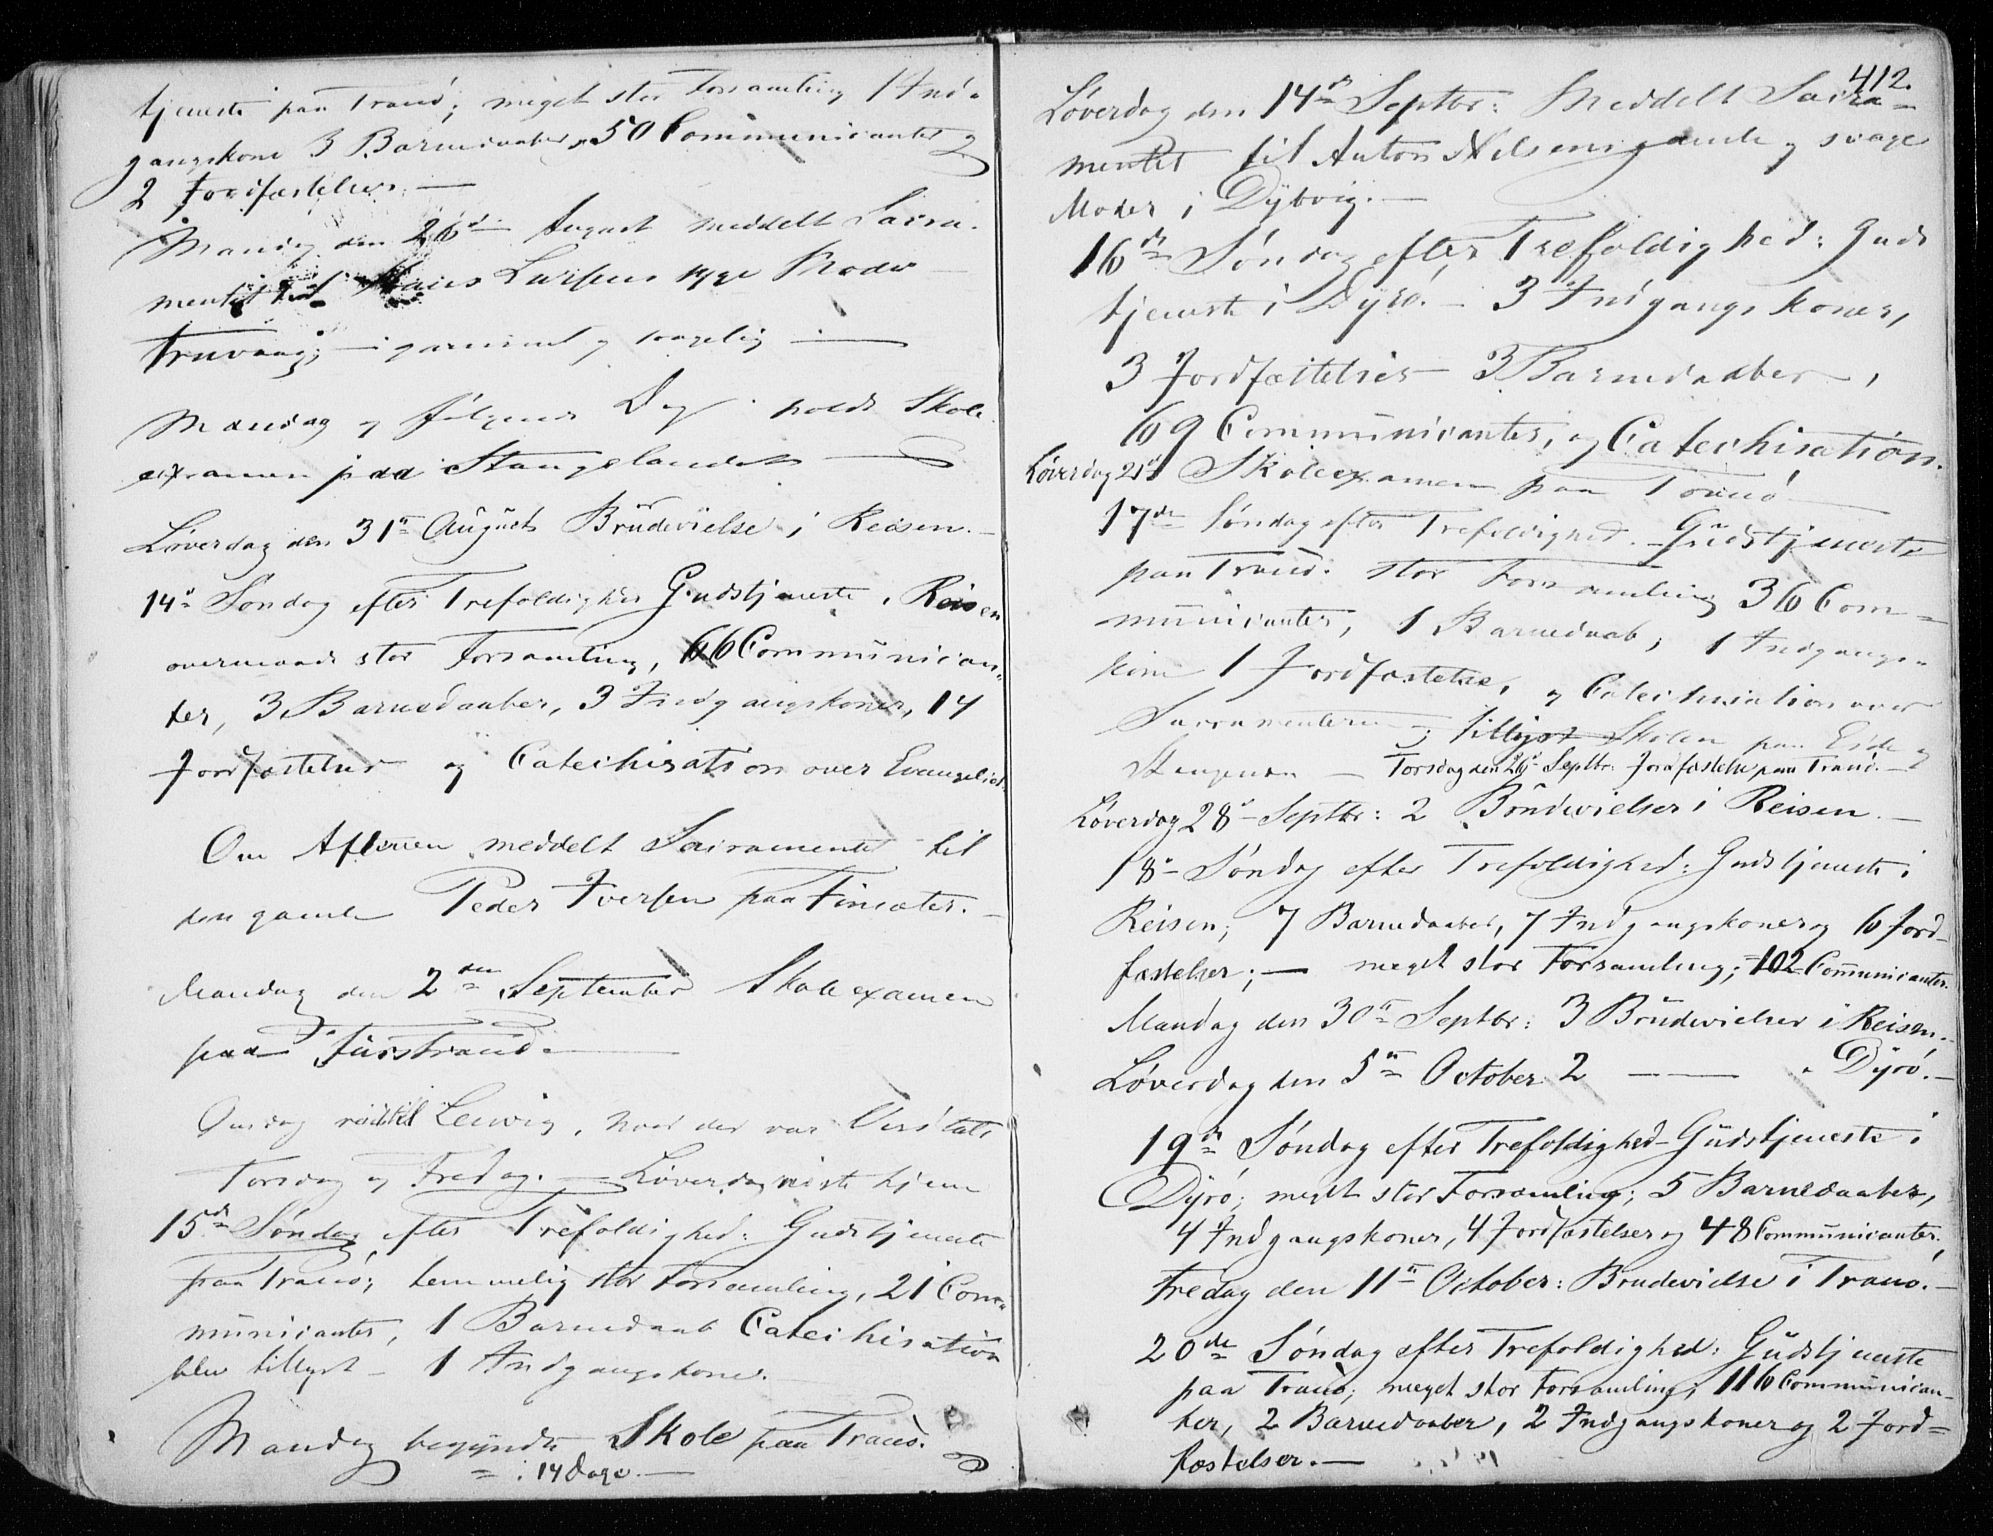 tjeneste paa Tranö; meget stor Forsamling 1 Ind-
gangskone 3 Barnedaaber, 50 Communicanter og
2 Jordfæstelser. —
Mandag den 26de August meddelt Sacra-
mentet til Larsens syge Moder
i og svagelig —
Mandag og følgende Dag holdt Skole
examen paa Stangelandet —
Løverdag den 31te August Brudevielse i Reisen. —
14de Søndag efter Trefoldighed Gudstjeneste i Reisen
overmaade stor Forsamling, 66 Communican-
ter, 3 Barnedaaber, 3 Indgangskoner, 14
Jordfæstelser og Catechisation over Evangeliet.
Om Aftenen meddelt Sacramentet til
den gamle Peder Iversen paa Finsæter. —
Mandag den 2den September Skoleexamen
paa
Onsdag reist til Lenvig, hvor der var Visitats
Torsdag og Fredag. — Løverdag reiste hjem
15de Søndag efter Trefoldighed: Gudstjeneste
paa Tranö; temmelig stor Forsamling, 21 Com-
municanter, 1 Barnedaab Catechisation
blev tillyst — 1 Indgangskone.
Mandag begyndte Skole paa Tranö.
= i 14 Dage. —
412.
Løverdag den 14de Septbr: Meddelt Sacra-
mentet til Anton Nilsens gamle og svage
Moder i Dybvig. —
16de Søndag efter Trefoldighed: Guds
tjeneste i Dyrö. — 3 Indgangskoner,
3 Jordfæstelser 3 Barnedaaber,
69 Communicanter, og Catechisation.
Løverdag 21de Skoleexamen paa Tranö
17de Søndag efter Trefoldighed. Gudstjeneste
paa Tranö: stor Forsamling 36 Com-
municanter, 1 Barnedaab, 1 Indgangs-
kone 1 Jordfæstelse, og Catechisation over
Sacramenterne; tillyst Skolen paa og
— Torsdag den 26de Septbr. Jordfæstelse paa Tranö. —
Løverdag 28de Septbr: 2 Brudevielser i Reisen. —
18de Søndag efter Trefoldighed: Gudstjeneste i
Reisen; 7 Barnedaaber, 7 Indgangskoner og 6 Jord-
fæstelser; — meget stor Forsamling; 102 Communicanter.
Mandag den 30te Septbr: 3 Brudevielser i Reisen. —
Løverdag den 5te October 2 — " Dyrö. —
19de Søndag efter Trefoldighed Gudstjeneste i
Dyrö; meget stor Forsamling; 5 Barnedaaber,
4 Indgangskoner, 4 Jordfæstelser og 48 Communicanter.
Fredag den 11te October: Brudevielse i Tranö. —
20de Søndag efter Trefoldighed: Gudstjeneste
paa Tranö; meget stor Forsamling; 116 Communican-
ter, 2 Barnedaaber, 2 Indgangskoner og 2 Jord=
fæstelser. —